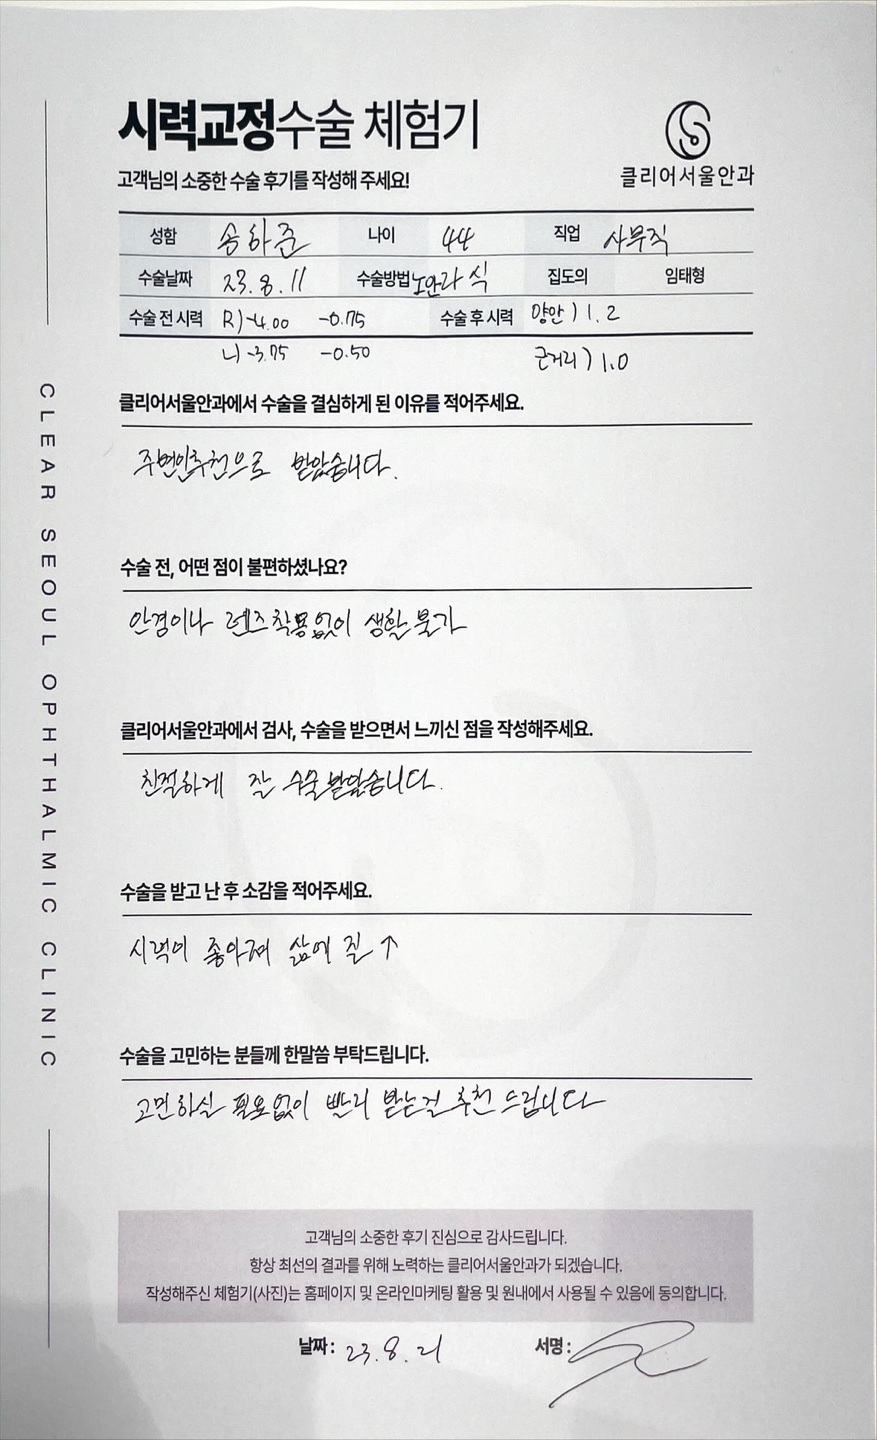 시력교정수술 체험기
고객님의 소중한 수술 후기를 작성해 주세요!
클리어서울안과
성함 송하준 나이 44 직업 사무직
수술날짜 23.8.11 수술방법 노안라식 집도의 임태형
수술 전 시력 R)-4.00 -0.75 수술 후 시력 양안) 1.2
L) -3.75 -0.50 근거리) 1.0
클리어서울안과에서 수술을 결심하게 된 이유를 적어주세요.
주변인추천으로 받았습니다.
수술 전, 어떤 점이 불편하셨나요?
안경이나 렌즈착용없이 생활불가
클리어서울안과에서 검사, 수술을 받으면서 느끼신 점을 작성해주세요.
친절하게 잘 수술받았습니다.
수술을 받고 난 후 소감을 적어주세요.
시력이 좋아져 삶에 질 ↑
수술을 고민하는 분들께 한말씀 부탁드립니다.
고민하실 필요없이 빨리 받는걸 추천 드립니다
고객님의 소중한 후기 진심으로 감사드립니다.
항상 최선의 결과를 위해 노력하는 클리어서울안과가 되겠습니다.
작성해주신 체험기(사진)는 홈페이지 및 온라인마케팅 활용 및 원내에서 사용될 수 있음에 동의합니다.
날짜 : 23.8.21 서명 :
CLEAR SEOUL OPHTHALMIC CLINIC